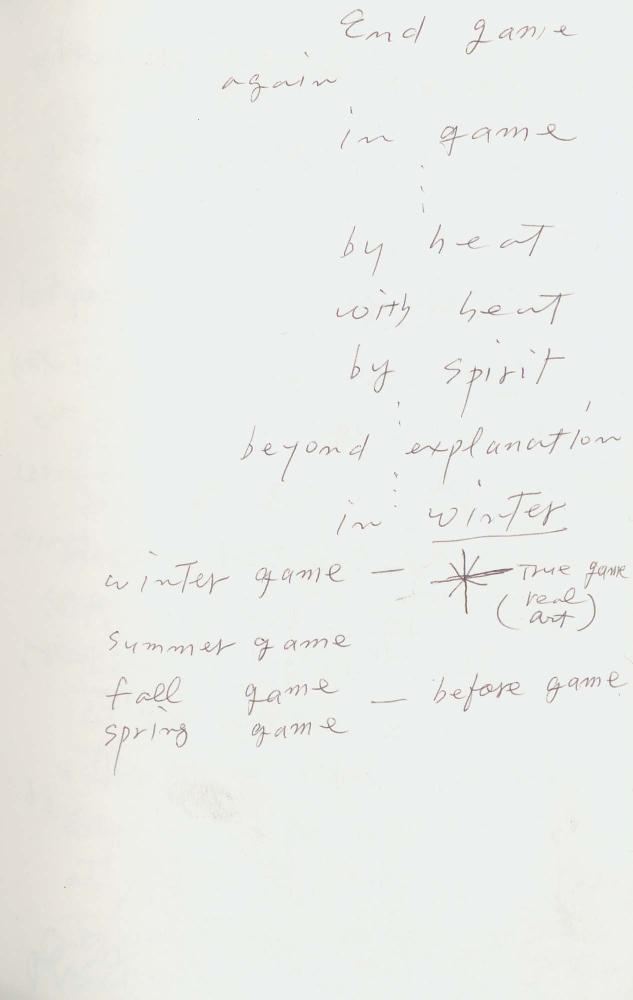 End game
again
in game
by heat
with heat
by spirit
beyond explanation
in winter
winter game — True game
(real art)
summer game
fall game — before game
spring game